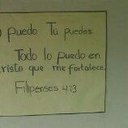 puedo Tú puedes
Todo lo puedo en
cristo que me fortalece
Filipenses 4:13